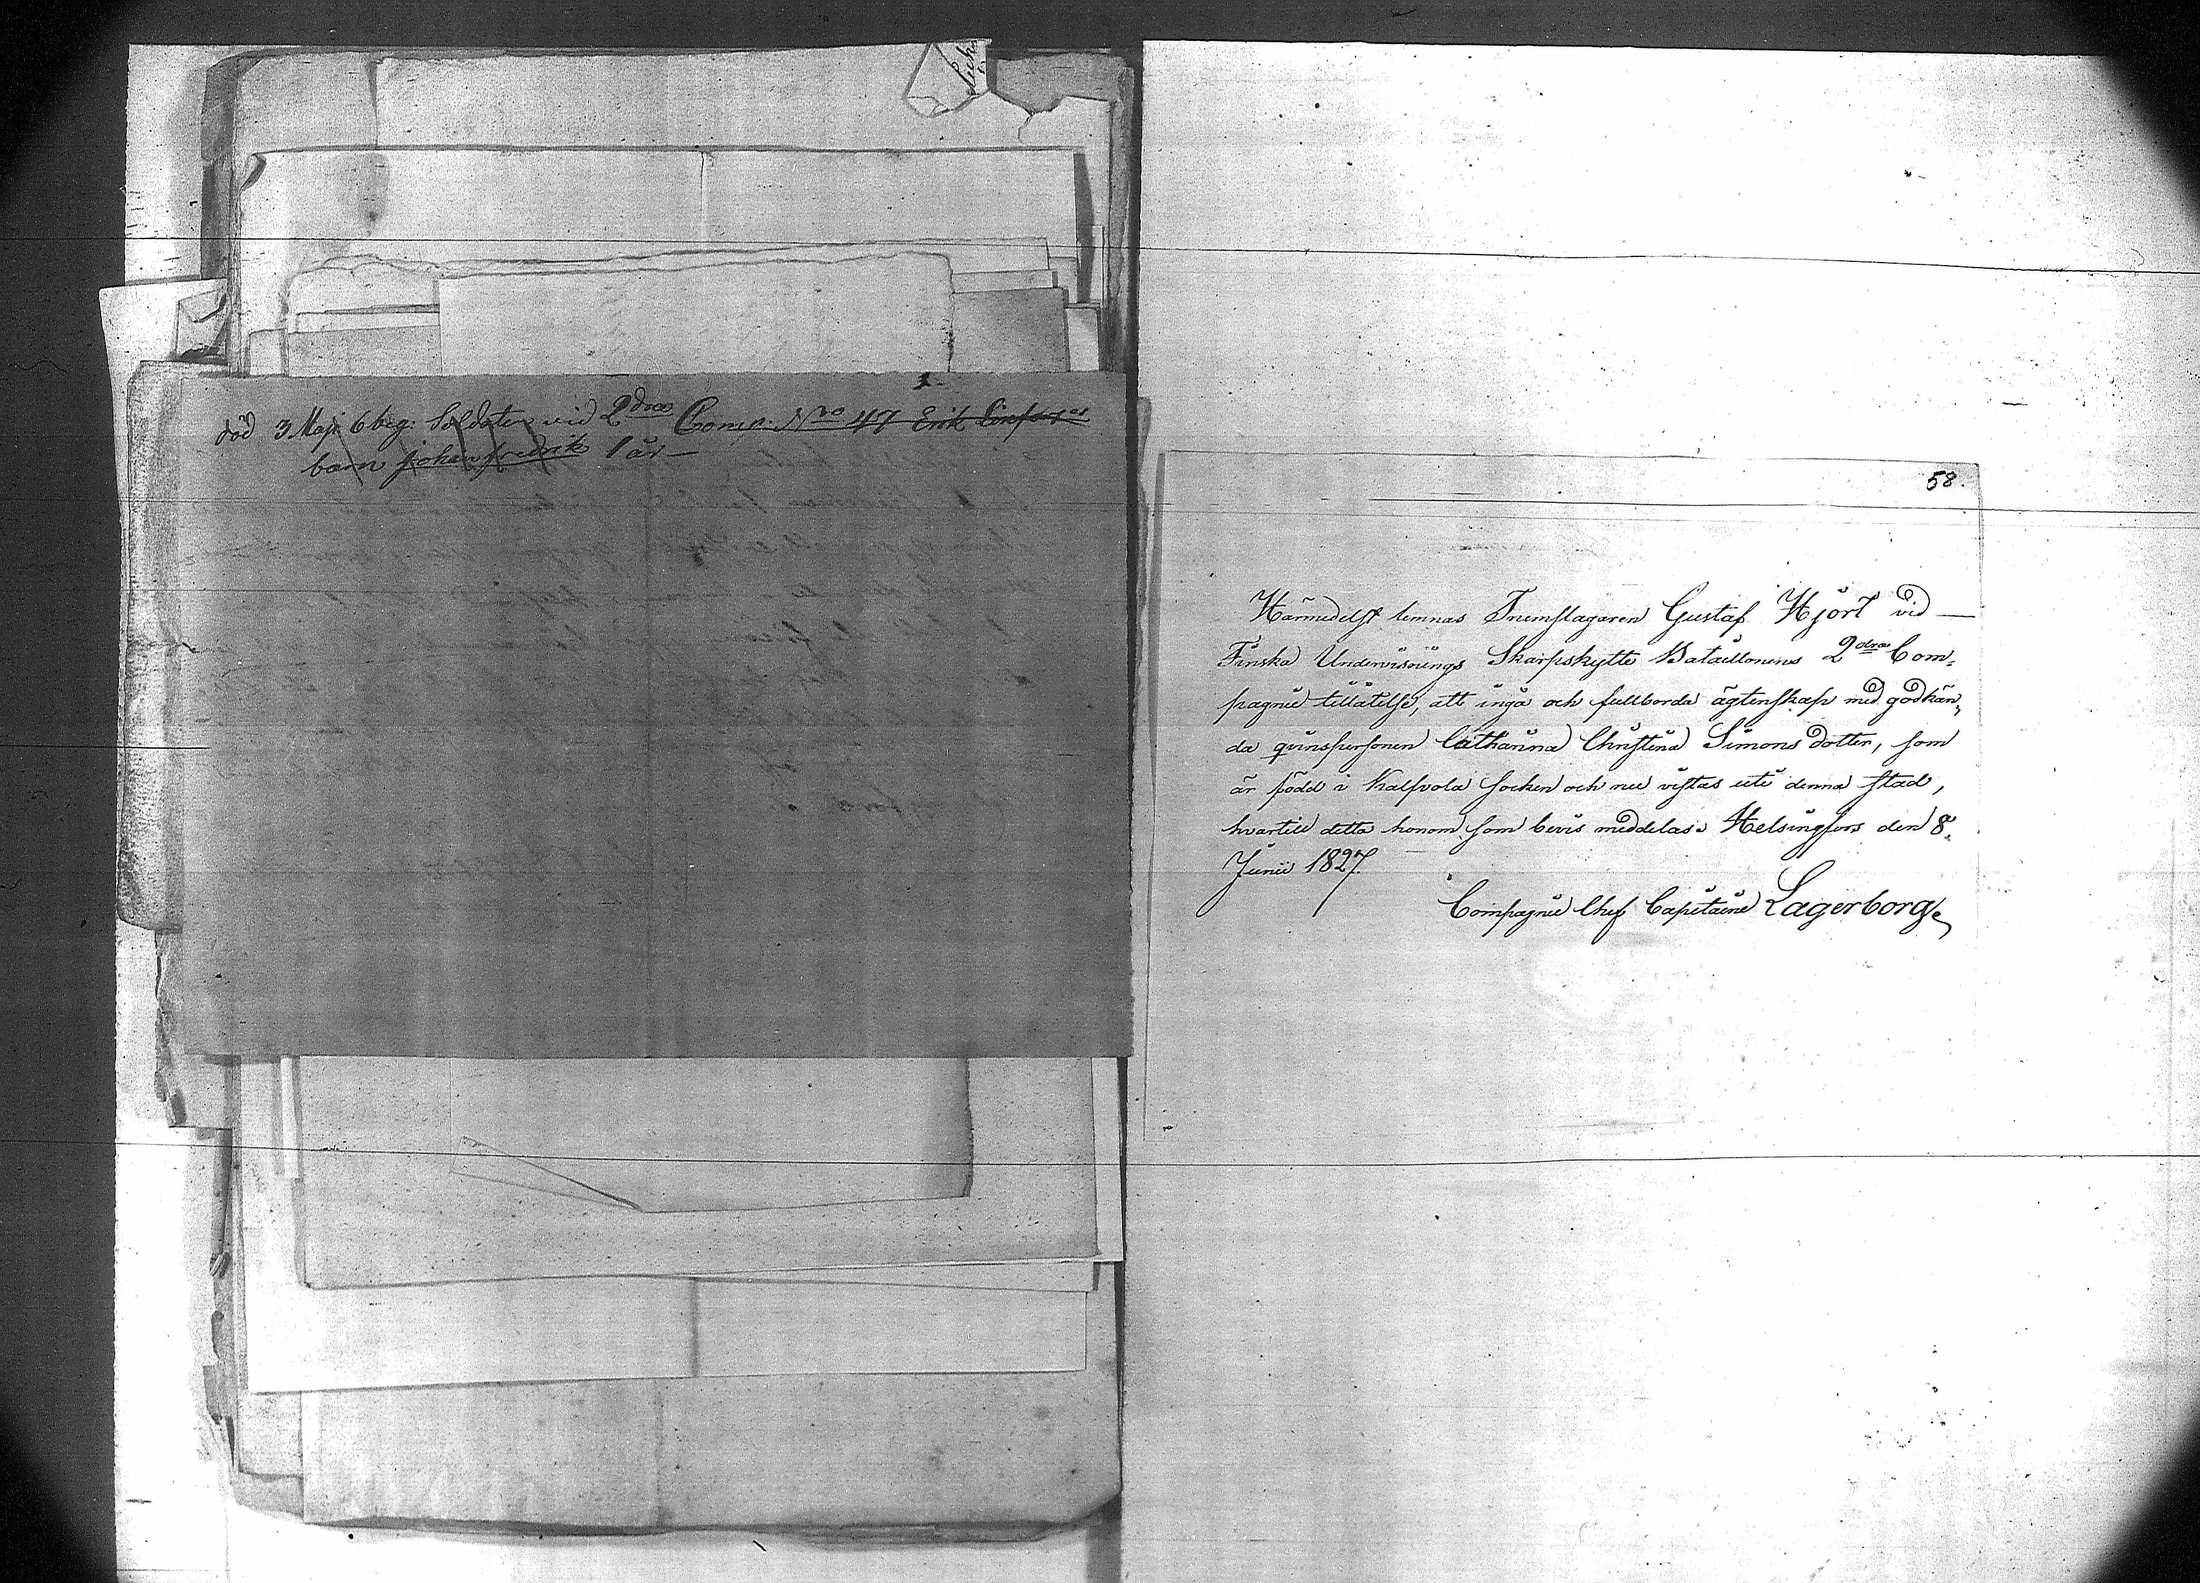 död 3 Maji 6 beg: Soldaten vid 2dra Comp: No 47 Erik
barn Johan fredrik 1 år
58.
Härmedelst lemnas Trumslagaren Gustaf Hjort vid
Finska Undervisnings Skarpskytte Bataillonens 2dra Com-
pagnie tillåtelse, att ingå och fullborda ägtenskap med godkän-
da qvinspersonen Catharina Christina Simons dotter, som
är född i Kalfvola Socken och nu vistas uti denna stad,
hvartill detta honom som bevis meddelas. Helsingfors den 8
Junii 1827.
Compagnie Chef Capitaine Lagerborg